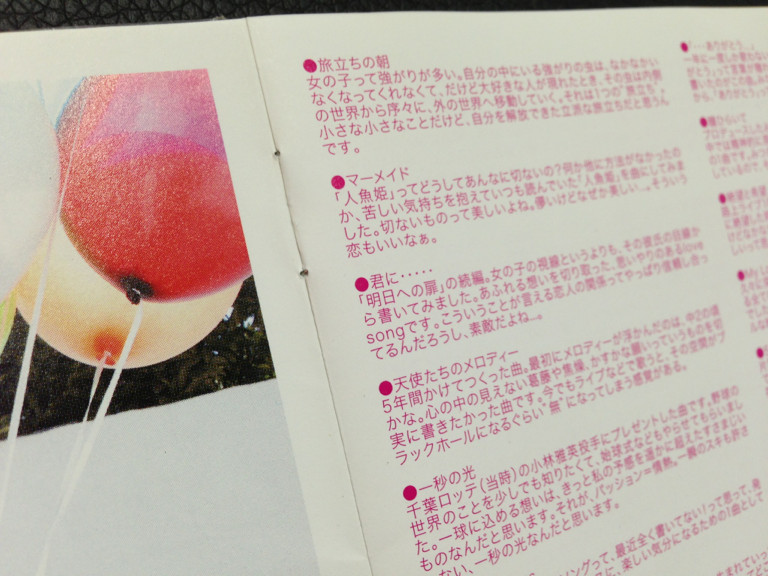 ●旅立ちの朝
女の子って強がりが多い。自分の中にいる強がりの虫は、なかなか
なくなってくれなくて、だけど大好きな人が現れたとき、その虫は内側
の世界から序々に、外の世界へ移動していく。それは1つの“旅立ち”。
小さな小さなことだけど、自分を解放できた立派な旅立ちだと思うん
です。
●マーメイド
「人魚姫」ってどうしてあんなに切ないの?何か他に方法がなかったの
か、苦しい気持ちを抱えていつも読んでいた“人魚姫”を曲にしてみま
した。切ないものって美しいよね。儚いけどなぜか美しい…。そういう
恋もいいなぁ。
●君に・・・・・
「明日への扉」の続編。女の子の視線というよりも、その彼氏の目線か
ら書いてみました。あふれる想いを切り取った、思いやりのあるlove
songです。こういうことが言える恋人の関係ってやっぱり信頼し合っ
てるんだろうし、素敵だよね…。
●天使たちのメロディー
5年間かけてつくった曲。最初にメロディーが浮かんだのは、中2の頃
かな。心の中の見えない葛藤や焦燥、かすかな願いっていうものを切
実に書きたかった曲です。今でもライブなどで歌うと、その空間がブ
ラックホールになるぐらい“無”になってしまう感覚がある。
●一秒の光
千葉ロッテ(当時)の小林雅英投手にプレゼントした曲です。野球の
世界のことを少しでも知りたくて、始球式などもやらせてもらいまし
た。一球に込める想いは、きっと私の予感を遥かに超えたすさまじい
ものなんだと思います。それが、パッション=情熱。一瞬のスキも許さ
ない、一秒の光なんだと思います。
ソングって、最近全く書いてない!って思って、身
に、楽しい気分になるための1曲として
●「・・・ありがとう